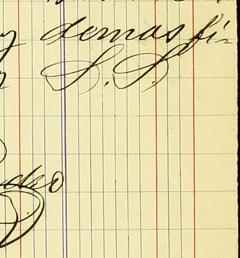 y demas fi-
S. S.
dso